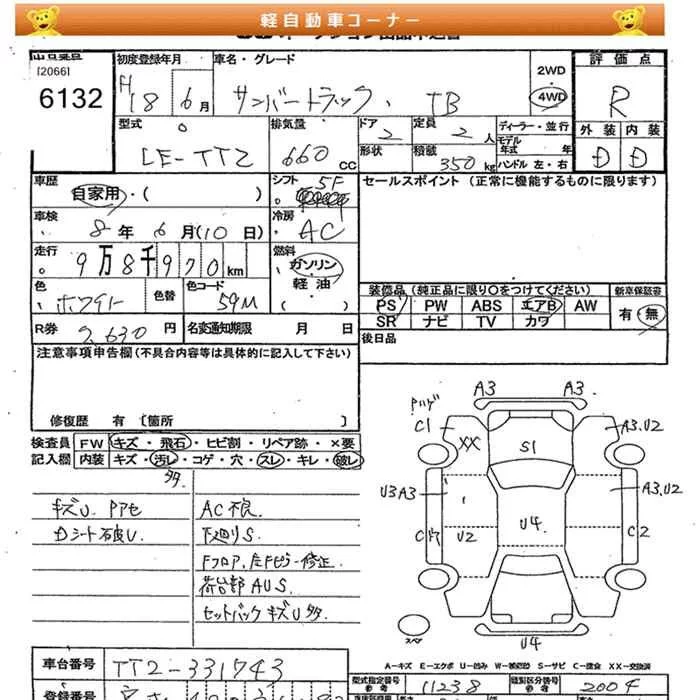 軽自動車コーナー
[2066]
6132
初度登録年月
H18 6月
車名・グレード
サンバートラック、 TB
2WD
4WD
評価点
R
型式
LE-TT2
排気量
660 CC
ドア
2
定員
2人
ディーラー・並行
モデル年式 年
形状
積載
350kg
ハンドル 左・右
外装 内装
D D
車歴
自家用・( )
シフト
5F
セールスポイント (正常に機能するものに限ります)
車検
8年 6月(10日)
冷房
AC
走行
9万8千970km
燃料
ガソリン
軽油
( )
色
ホワイト
色替
色コード
59M
装備品 (純正品に限り○をつけてください)
新車保証書
PS PW ABS エアB AW
SR ナビ TV カワ
有・無
R券
9,630円
名変通知期限 月 日
後日品
注意事項申告欄 (不具合内容等は具体的に記入して下さい)
修復歴 有 [箇所 ]
検査員
記入欄
FW キズ・飛石・ヒビ割・リペア跡・×要
内装 キズ・汚レ・コゲ・穴・スレ・キレ・破レ
多々
キズU Pアセ
Dシート破U.
AC不良
下廻りS
Fフロア,左Fピラー修正
荷台部AUS
セットバックキズU多々
A3 A3
C1
XX
S1
A3.U2
U3A3
U2
U4
A3.U2
C2
スペア
U4
A-キズ E-エクボ U-凹み W-補修跡 S-サビ C-腐食 XX-交換済
車台番号
TT2-331743
型式指定番号
参考
11238
類別区分番号
参考
2004
登録番号